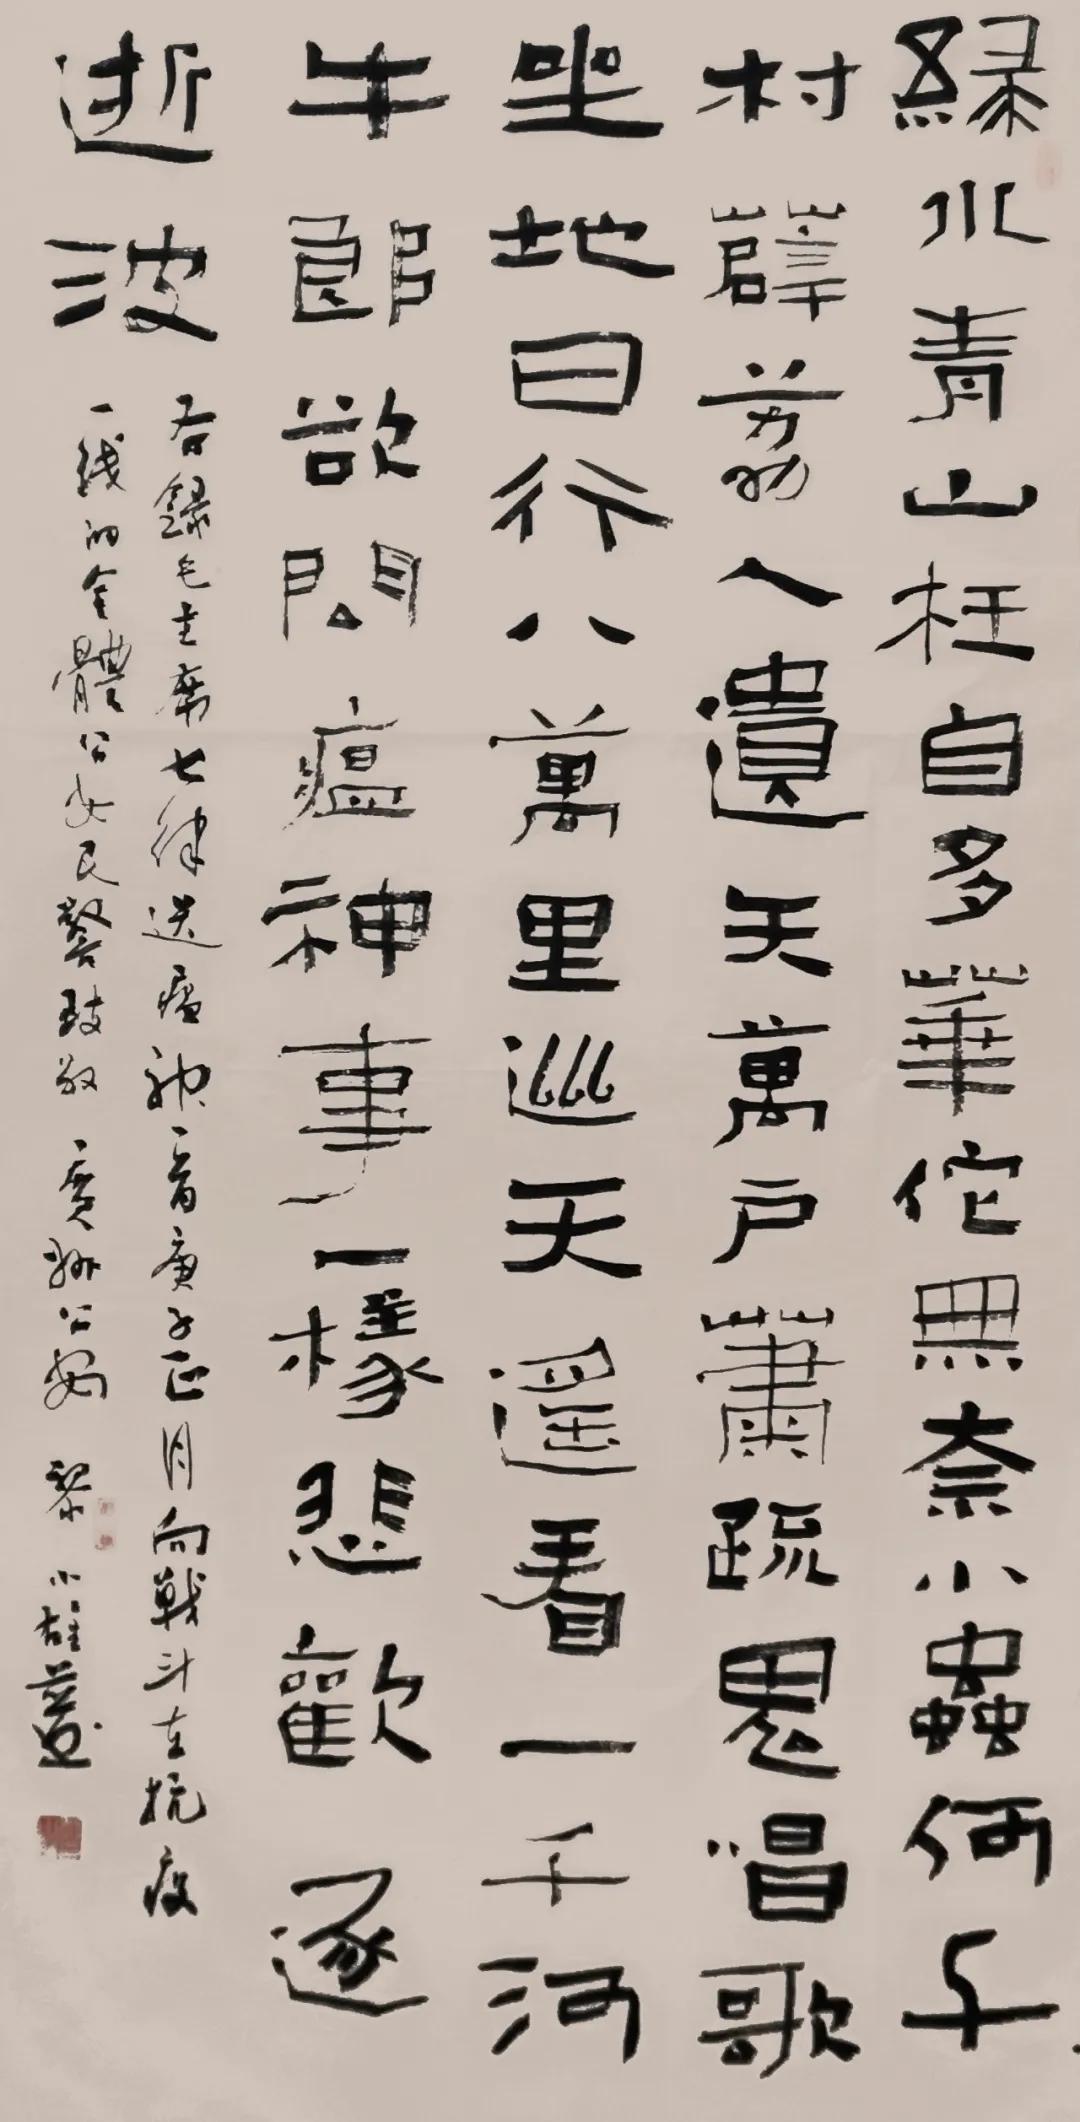 緑水青山枉自多華佗無奈小蟲何千
村薜荔人遺矢萬户蕭疏鬼唱歌
坐地日行八萬里巡天遥看一千河
牛郎欲問瘟神事一樣悲歡逐
逝波
右録毛主席七律送瘟神一首庚子正月向戰斗在抗疫
一綫的全體公安民警致敬 公安 黎小雄